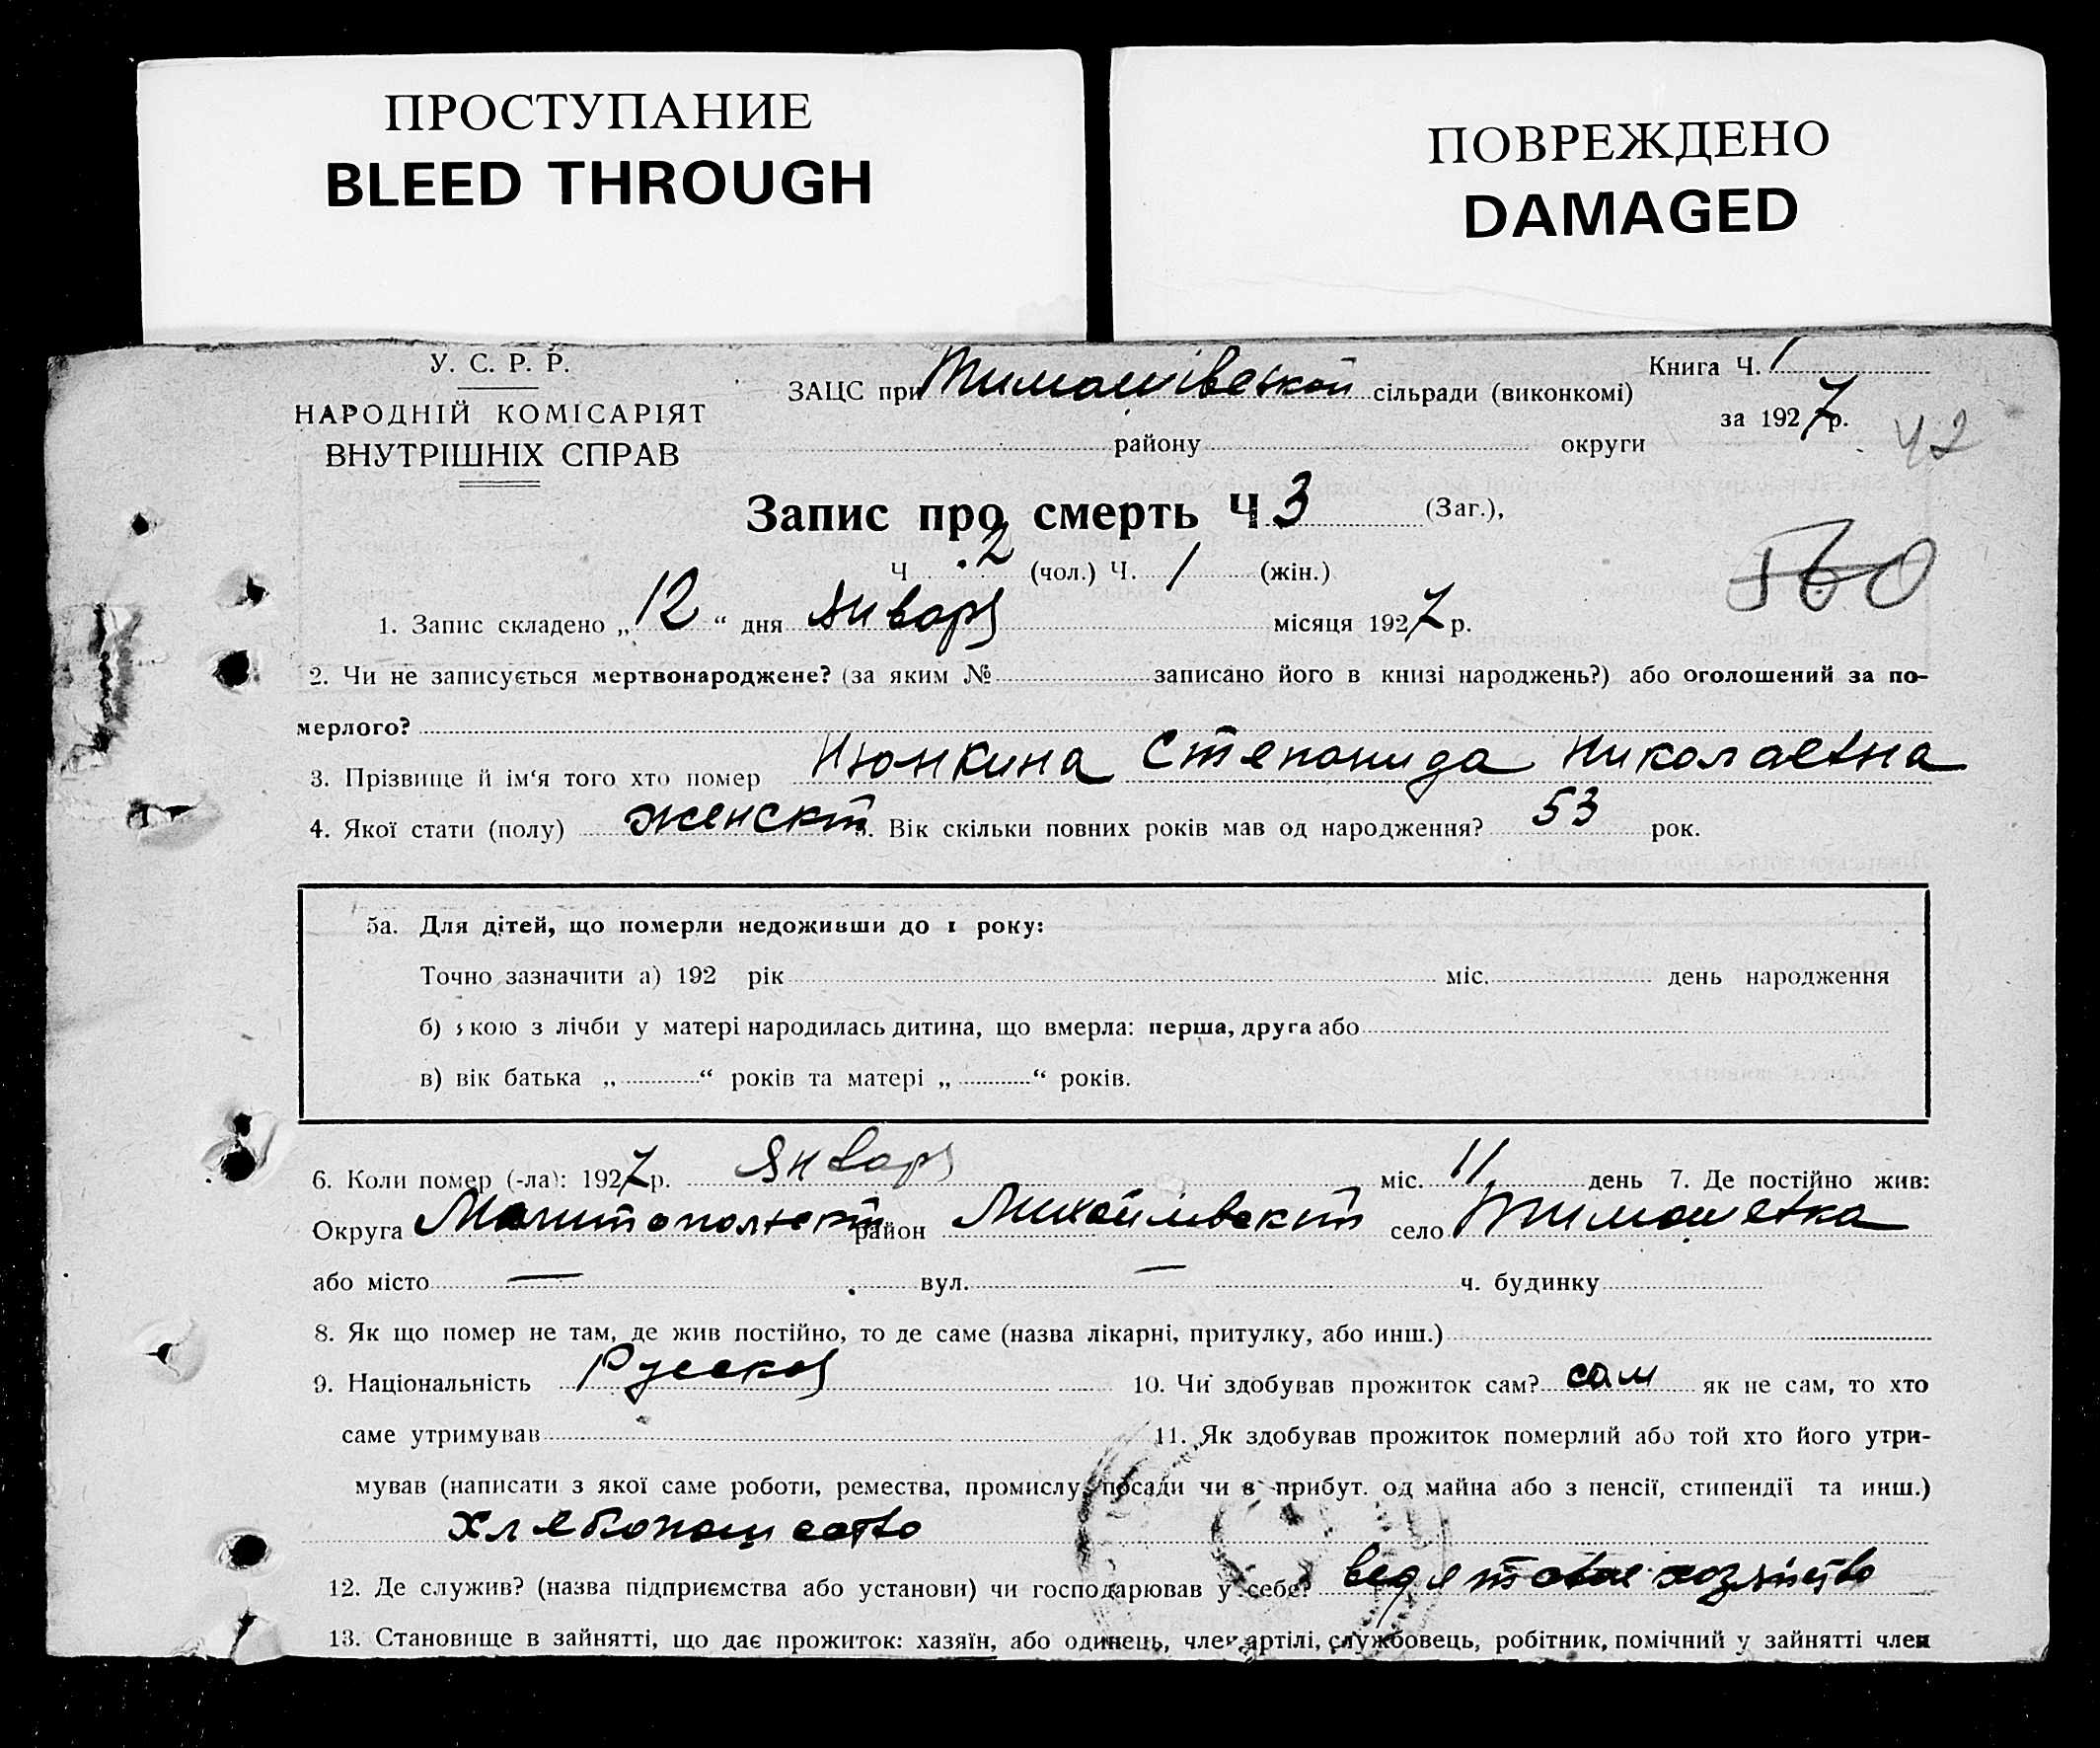 ПРОСТУПАНИЕ
BLEED THROUGH
ПОВРЕЖДЕНО
DAMAGED
У. С. Р. Р.
НАРОДНІЙ КОМІСАРІЯТ
ВНУТРІШНІХ СПРАВ
Книга Ч. 1
ЗАЦС при Тимошівской сільради (виконкомі)
за 1927 р.
42
району округи
Запис про смерть Ч 3 (Заг.),
Ч. 2 (чол.) Ч. 1 (жін.)
560
1. Запис складено „12“ дня Января місяця 1927 р.
2. Чи не записується мертвонароджене? (за яким № записано його в книзі народжень?) або оголошений за по-
мерлого?
3. Прізвище й ім‘я того хто помер Июнкина Степонида Николаевна
4. Якої стати (полу) женскт. Вік скільки повних років мав од народження? 53 рок.
5а. Для дітей, що померли недоживши до 1 року:
Точно зазначити а) 192 рік міс. день народження
б) якою з лічби у матері народилась дитина, що вмерла: перша, друга або
в) вік батька „ “ років та матері „ “ років.
6. Коли помер (-ла): 1927 р. Января міс. 11 день 7. Де постійно жив:
Округа Мелитопольский район Михайлівский село Тимошевка
або місто — вул. — ч. будинку
8. Як що помер не там, де жив постійно, то де саме (назва лікарні, притулку, або инш.)
9. Національність Русская 10. Чи здобував прожиток сам? сам як не сам, то хто
саме утримував 11. Як здобував прожиток померлий або той хто його утри-
мував (написати з якої саме роботи, ремества, промислу, посади чи в прибут. од майна або з пенсії, стипендії та инш.)
хлебопашество
12. Де служив? (назва підприємства або установи) чи господарював у себе? ведет свое хозяйство
13. Становище в зайнятті, що дає прожиток: хазяїн, або одинець, член артілі, службовець, робітник, помічний у зайнятті член